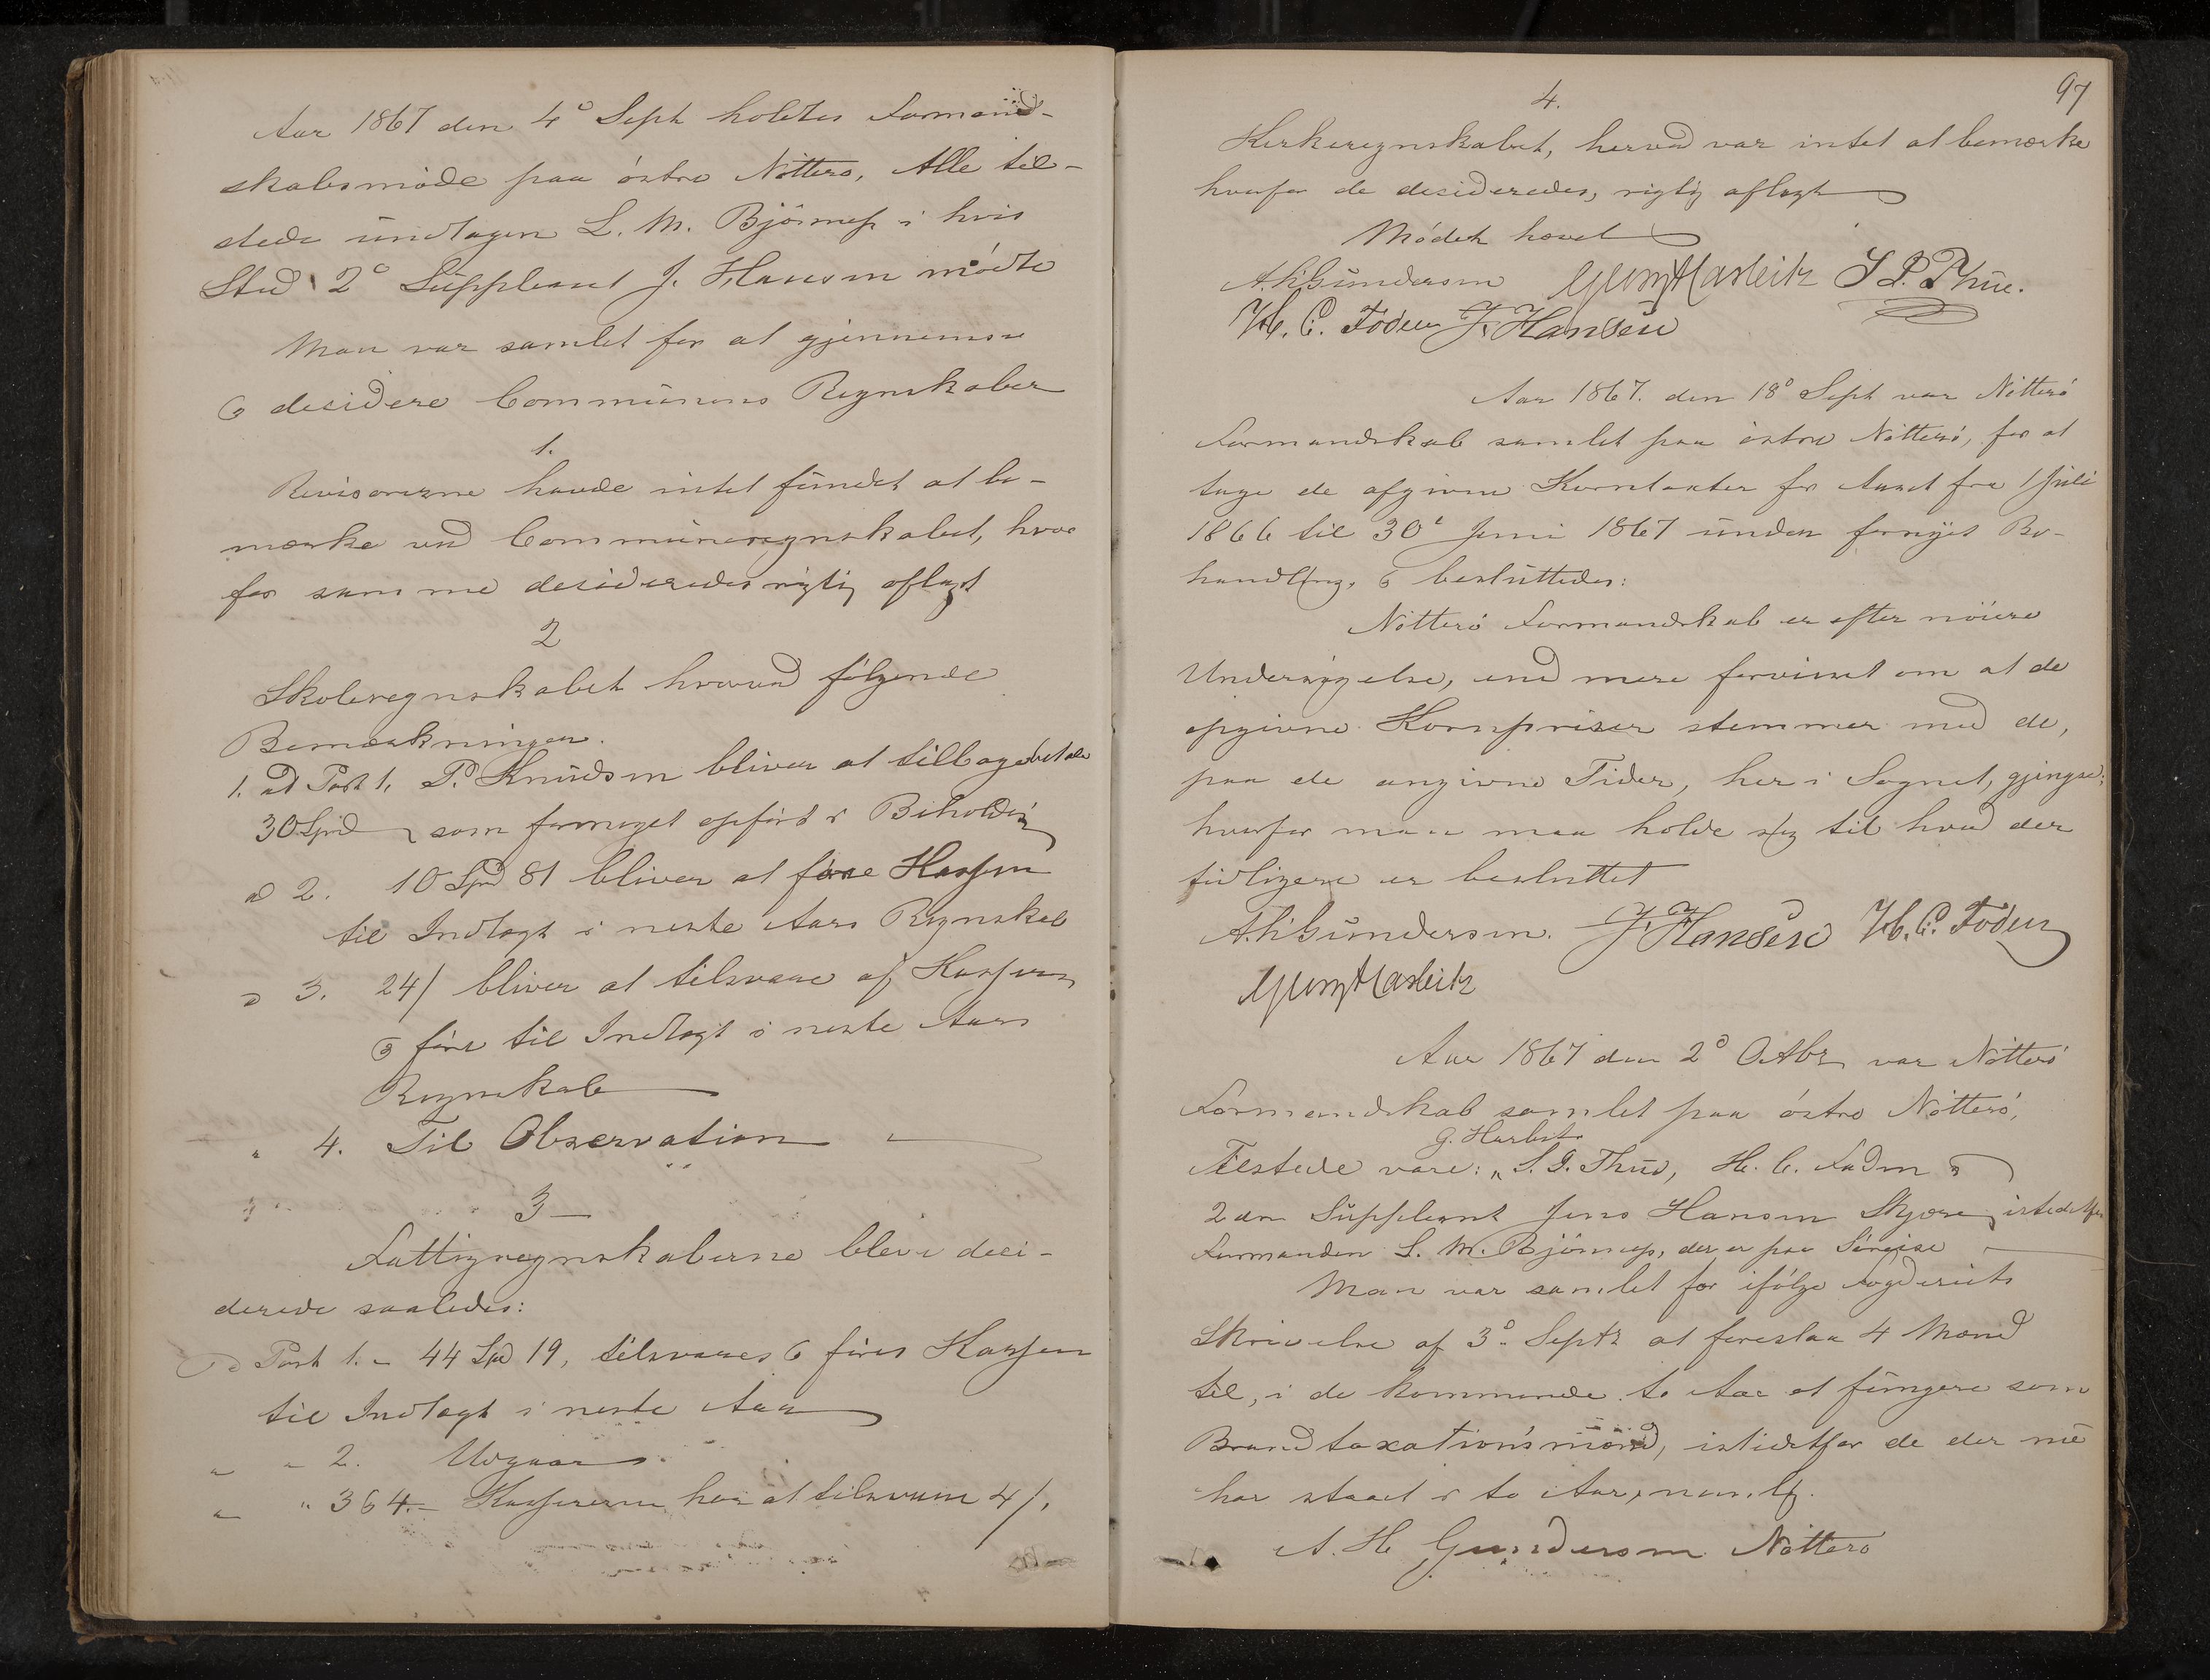 Aar 1867 den 4° Sept holdtes Formand-
skabsmöde paa östre Nötterö, Alle til-
stede undtagen L. M. Bjönness i hvis
Sted 2° Suppleant J. Hansen mödte
Man var samlet for at gjennemse
& desidere Communens Regnskaber
1.
Revisorerne havde intet fundet at be-
mærke ved Communeregnskabet, hvor
for samme desideredes rigtig aflagt
2
Skoleregnskabet hvorved fölgende
Bemærkninger.
1. ad Post 1. P. Knudsen bliver at tilbagebetale
30 Spd som formeget opfört i Beholdn
ad 2. 10 Spd 81 bliver at före Kassen
til Indtægt i neste Aars Regnskab
ad 3. 24 s bliver at tilsvare af Kasseren
& före til Indtægt i neste Aars
Regnskab
" 4. Til Observation
3
Fattigregnskaberne bleve deci-
derede saaledes:
ad Post 1. - 44 Spd 19, tilsvares & föres Kassen
til Indtægt i neste Aar
" " 2. Udgaar
" " 3 & 4. - Kassereren har at tilsvare 4 s,
97
4.
Kirkeregnskabet, herved var intet at bemærke
hvorfor de desideredes, rigtig aflagt
Mödet hævet
A. H. Gundersen G. Harbitz S P. Thue.
H. C. Foden J. Hansen
Aar 1867. den 18° Sept var Nötterö
Formandskab samlet paa östre Nötterö, for at
tage de afgivne Korntaxter for Aaret fra 1 Juli
1866 til 30' Juni 1867 under fornyet Be-
handling, & besluttedes:
Nötterö Formandskab er efter nöiere
Undersögelse, end mere forvisset om at de
opgivne Kornpriser stemmer med de,
paa de angivne Tider, her i Sognet, gjengse;
hvorfor man maa holde sig til hvad der
tidligere er besluttet
A. H. Gundersen. J. Hansen H. C. Foden
G. Harbitz
Aar 1867 den 2° Octbr var Nötterö
Formandskab samlet paa östre Nötterö,
G. Harbitz
Tilstede vare: " S. P. Thue, H. C. Foden &
2den Suppleant Jens Hansen Skjerve istedetfor
Formanden L. M. Bjönness, der er paa Söreise
Man var samlet for ifölge Fogderiets
Skrivelse af 3° Septr at foreslaa 4 Mænd
til, i de kommende to Aar at fungere som
Brandtaxationsmænd, istedetfor de der nu
har staaet i to Aar, nemlig.
A. H. Gundersen Nötterö